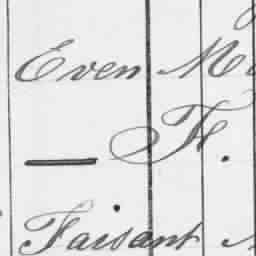 Even M
— H.
Faisant